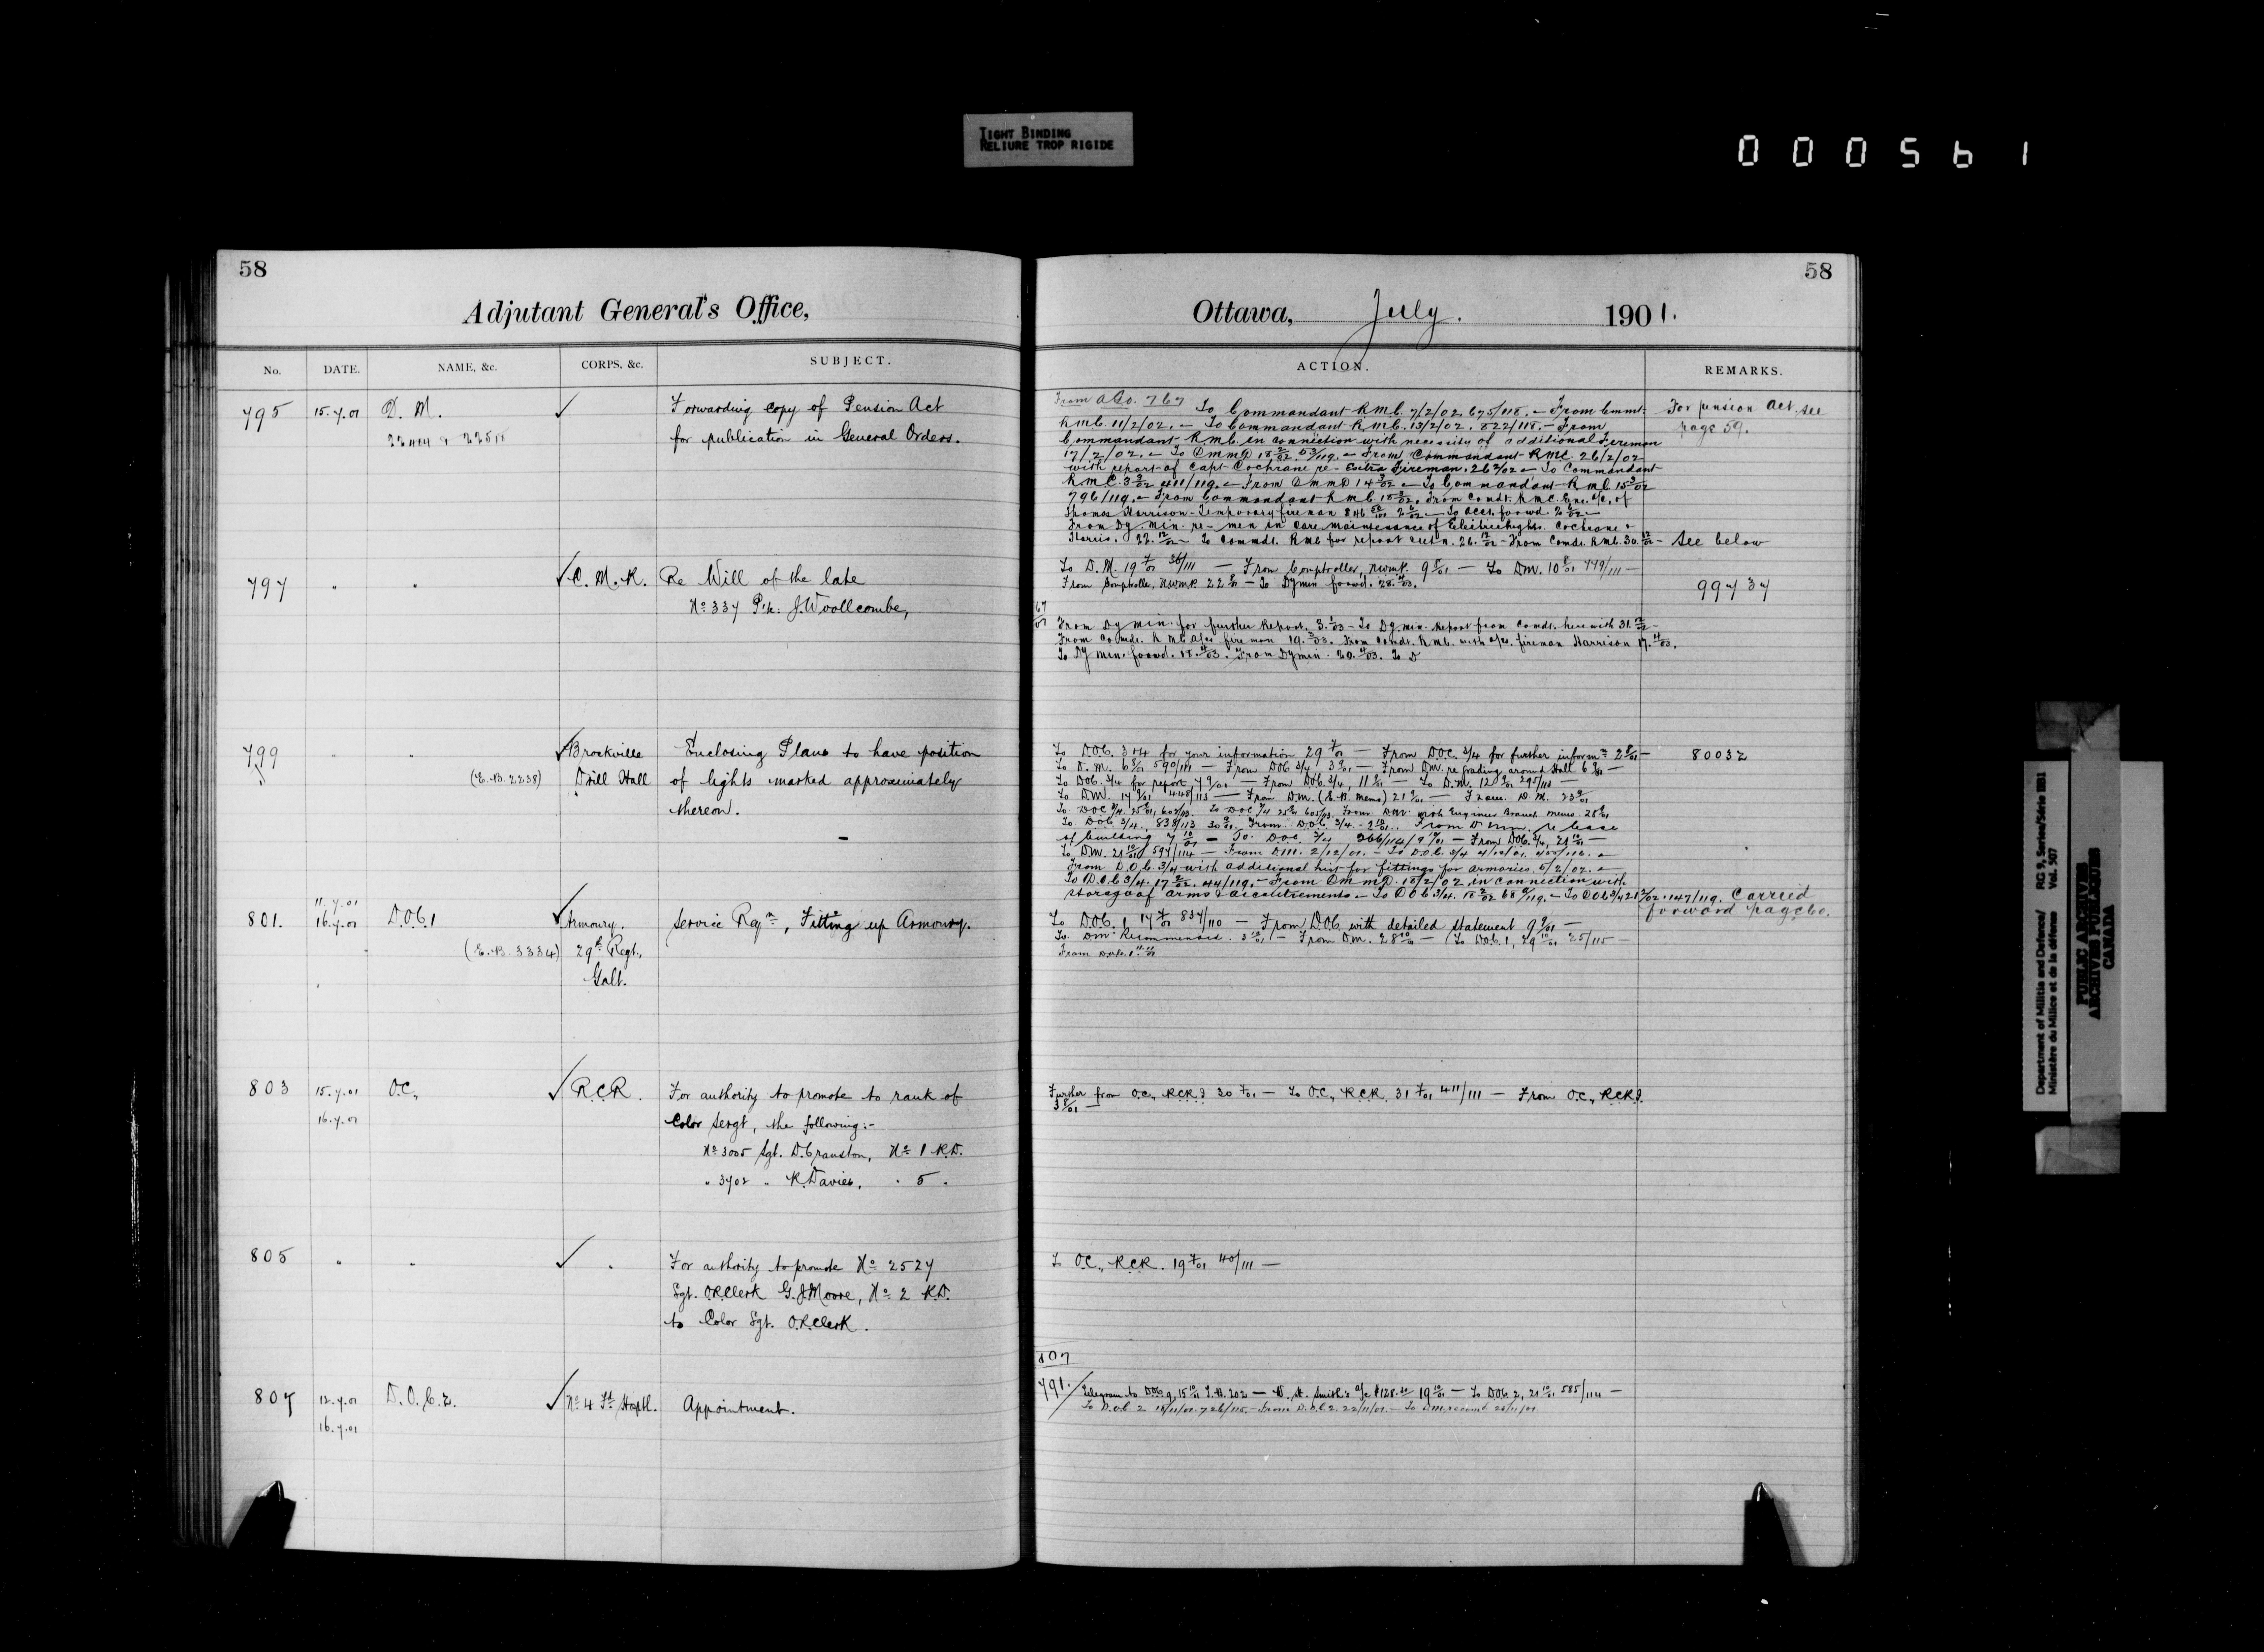 TIGHT BINDING
RELIURE TROP RIGIDE
000561
58
Adjutant General's Office,
No. DATE. NAME, &c. CORPS, &c. SUBJECT.
795 15.7.01 D. M. ✓ Forwarding copy of Pension Act
for publication in General Orders.
797 " " ✓ C. M. R. Re Will of the late
No 337 Pte. J. Woollcombe,
799 " " ✓ Brockville Enclosing Plans to have position
(E.B. 2238) Drill Hall of lights marked approximately
thereon.
11.7.01
801. 16.7.01 D.O.C. 1 ✓ Armoury. Service Reqn, Fitting up Armoury.
(E.B. 3334) 29th Regt.,
Galt.
803 15.7.01 O.C., ✓ R.C.R. For authority to promote to rank of
16.7.01 Color Sergt, the following:-
No 3005 Sgt. D. Cranston, No 1 R.D.
" 3702 " R. Davies, " 5 "
805 " " ✓ " For authority to promote No 2527
Sgt. O.R. Clerk G. J. Moore, No 2 R.D.
to Color Sgt. O.R. Clerk.
807 12.7.01 D.O.C. 2. ✓ No 4 Fd Hosptl. Appointment.
16.7.01
58
Ottawa, July. 1901.
ACTION. REMARKS.
From AGO. 767 To Commandant R.M.C. 7/2/02 675/118. – From Commt.
For pension Act see
page 59.
R.M.C. 11/2/02. – To Commandant R.M.C. 13/2/02. 822/118. – From
Commandant R.M.C. in connection with necessity of additional Fireman
17/2/02. – To DMMD 18 2/02 53/119. – From Commandant RMC. 26/2/02
with report of Capt Cochrane re Extra Fireman. 26 2/02 – To Commandant
R.M.C. 3 3/02 – From DMMD 14 3/02 – To Commandant R.M.C. 15 3/02
796/119. – From Commandant R.M.C. 18 3/02. From Comdt. R.M.C. of
Thomas Harrison – Temporary fireman
From Dy Min. re men in care maintenance of Electric lights. Cochrane &
Harris. 22. 12/02 – To Commdt. RMC for report 26. 12/02 – From Comdt. RMC. 30. 12/02 – See below
To D.M. 19 7/01 36/111 — From Comptroller, NWMP. 9 8/01 — To DM. 10 8/01 779/111 —
From Comptroller, NWMP. 22 – To Dy Min forwd.
99737
From Dy Min. for further Report. 3. 1/03 – To Dy Min. Report from Comdt. herewith 31. 12/02 –
From Comdt. RMC fireman 19. From Comdt. RMC. with a/cs. fireman Harrison 17. 4/03.
To Dy Min. forwd. 18. 4/03. From Dy Min. 20. 4/03. To D
To DOC. 3 & 4 for your information 29 7/01 — From DOC. 3/4 for further informn 2 8/01 — 80032
To D.M. 6 8/01 590/111 — From DOC 3/4 3 9/01 — From DM. re Grading around Hall 6 9/01 —
To DOC. 3/4 for report 7 9/01 — From DOC. 3/4, 11 9/01 — To D.M. 12 9/01 295/113 —
To DM. 17 9/01 448/113 — From D.M. (E.B. Memo) 21 9/01 — From D.M. 23 9/01
To DOC 3/4. 25 9/01, 605/113. From DM. with Engineer Branch Memo 28 9/01
To DOC 3/4. 838/113 30 9/01. From DOC. 3/4. 2 10/01. From re lease
of building 7 10/01 – To DOC 3/4 266/114 – From DOC. 3/4, 21 10/01 –
To D.M. 21 10/01 597/114 – From D.M. 2/12/01. – To D.O.C. 3/4 4/12/01.
From D.O.C. 3/4 with additional list for fittings for armories. 5/2/02. –
To D.O.C. 3/4. 17 2/02. 44/119. – From DMMD. 18/2/02 in connection with
storage of arms & accoutrements – To DOC 3/4. 18 2/02 68/119. – To DOC 3/4 21 2/02. 147/119. Carried
forward page 60.
To DOC. 1 17 7/01 837/110 — From DOC. with detailed statement 9 9/01 —
To DM Recommended. 3 10/01 – From D.M. 28 10/01 — To DOC. 1, 29 10/01 25/115 —
From DOC. 1
Further from O.C., RCRI 30 7/01 — To O.C., RCR. 31 7/01 411/111 — From O.C., RCRI.
3 8/01 —
To O.C., RCR. 19 7/01 40/111 —
807
791. Telegram to DOC 15 10/01 — — To DOC. 2, 21 10/01 585/114 —
To D.O.C. 2 18/11/01. 726/115. – From D.O.C. 2. 22/11/01. –
Department of Militia and Defence/ RG 9, Series/Série IIB1
Ministère du Milice et de la défense Vol. 507
PUBLIC ARCHIVES
ARCHIVES PUBLIQUES
CANADA